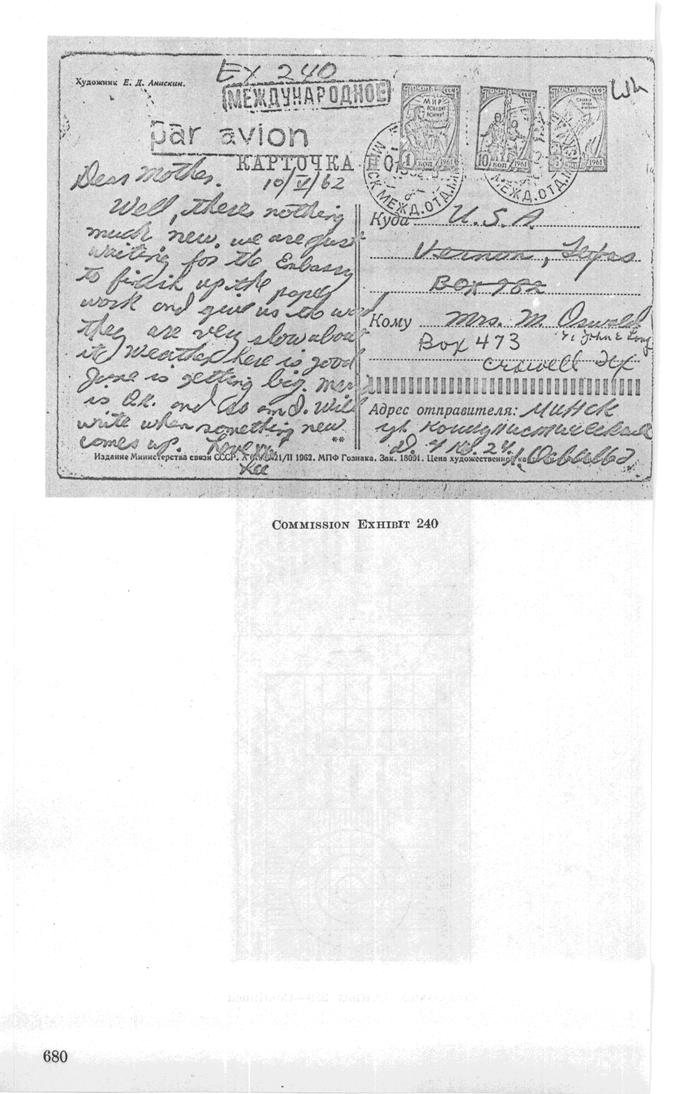 EX 240
Художник Е. Д. Анискин.
МЕЖДУНАРОДНОЕ
par avion
КАРТОЧКА
Dear Mother. 10/V/62
Well, there nothing
much new. we are just
waiting for the Embassy
to finish up the paper
work and give us the word
they are very slow about
it Weather here is good
June is getting big.
is O.K. and so am I. Will
write when something new
comes up. Love
Lee
**
МИР
1 коп 1961
10 коп 1961
1961
МИНСК МЕЖД.ОТД.
Куда U.S.A.
Vernon, Texas
Box 982
Кому Mrs. M. Oswald
Box 473 % John E Long
Crowell Tex
Адрес отправителя: МИНСК
ул. Коммунистическая
Д. 4 кв. 24.
Издание Министерства связи СССР. 21/II 1962. МПФ Гознака. Зак. 18001. Цена художественной
COMMISSION EXHIBIT 240
680